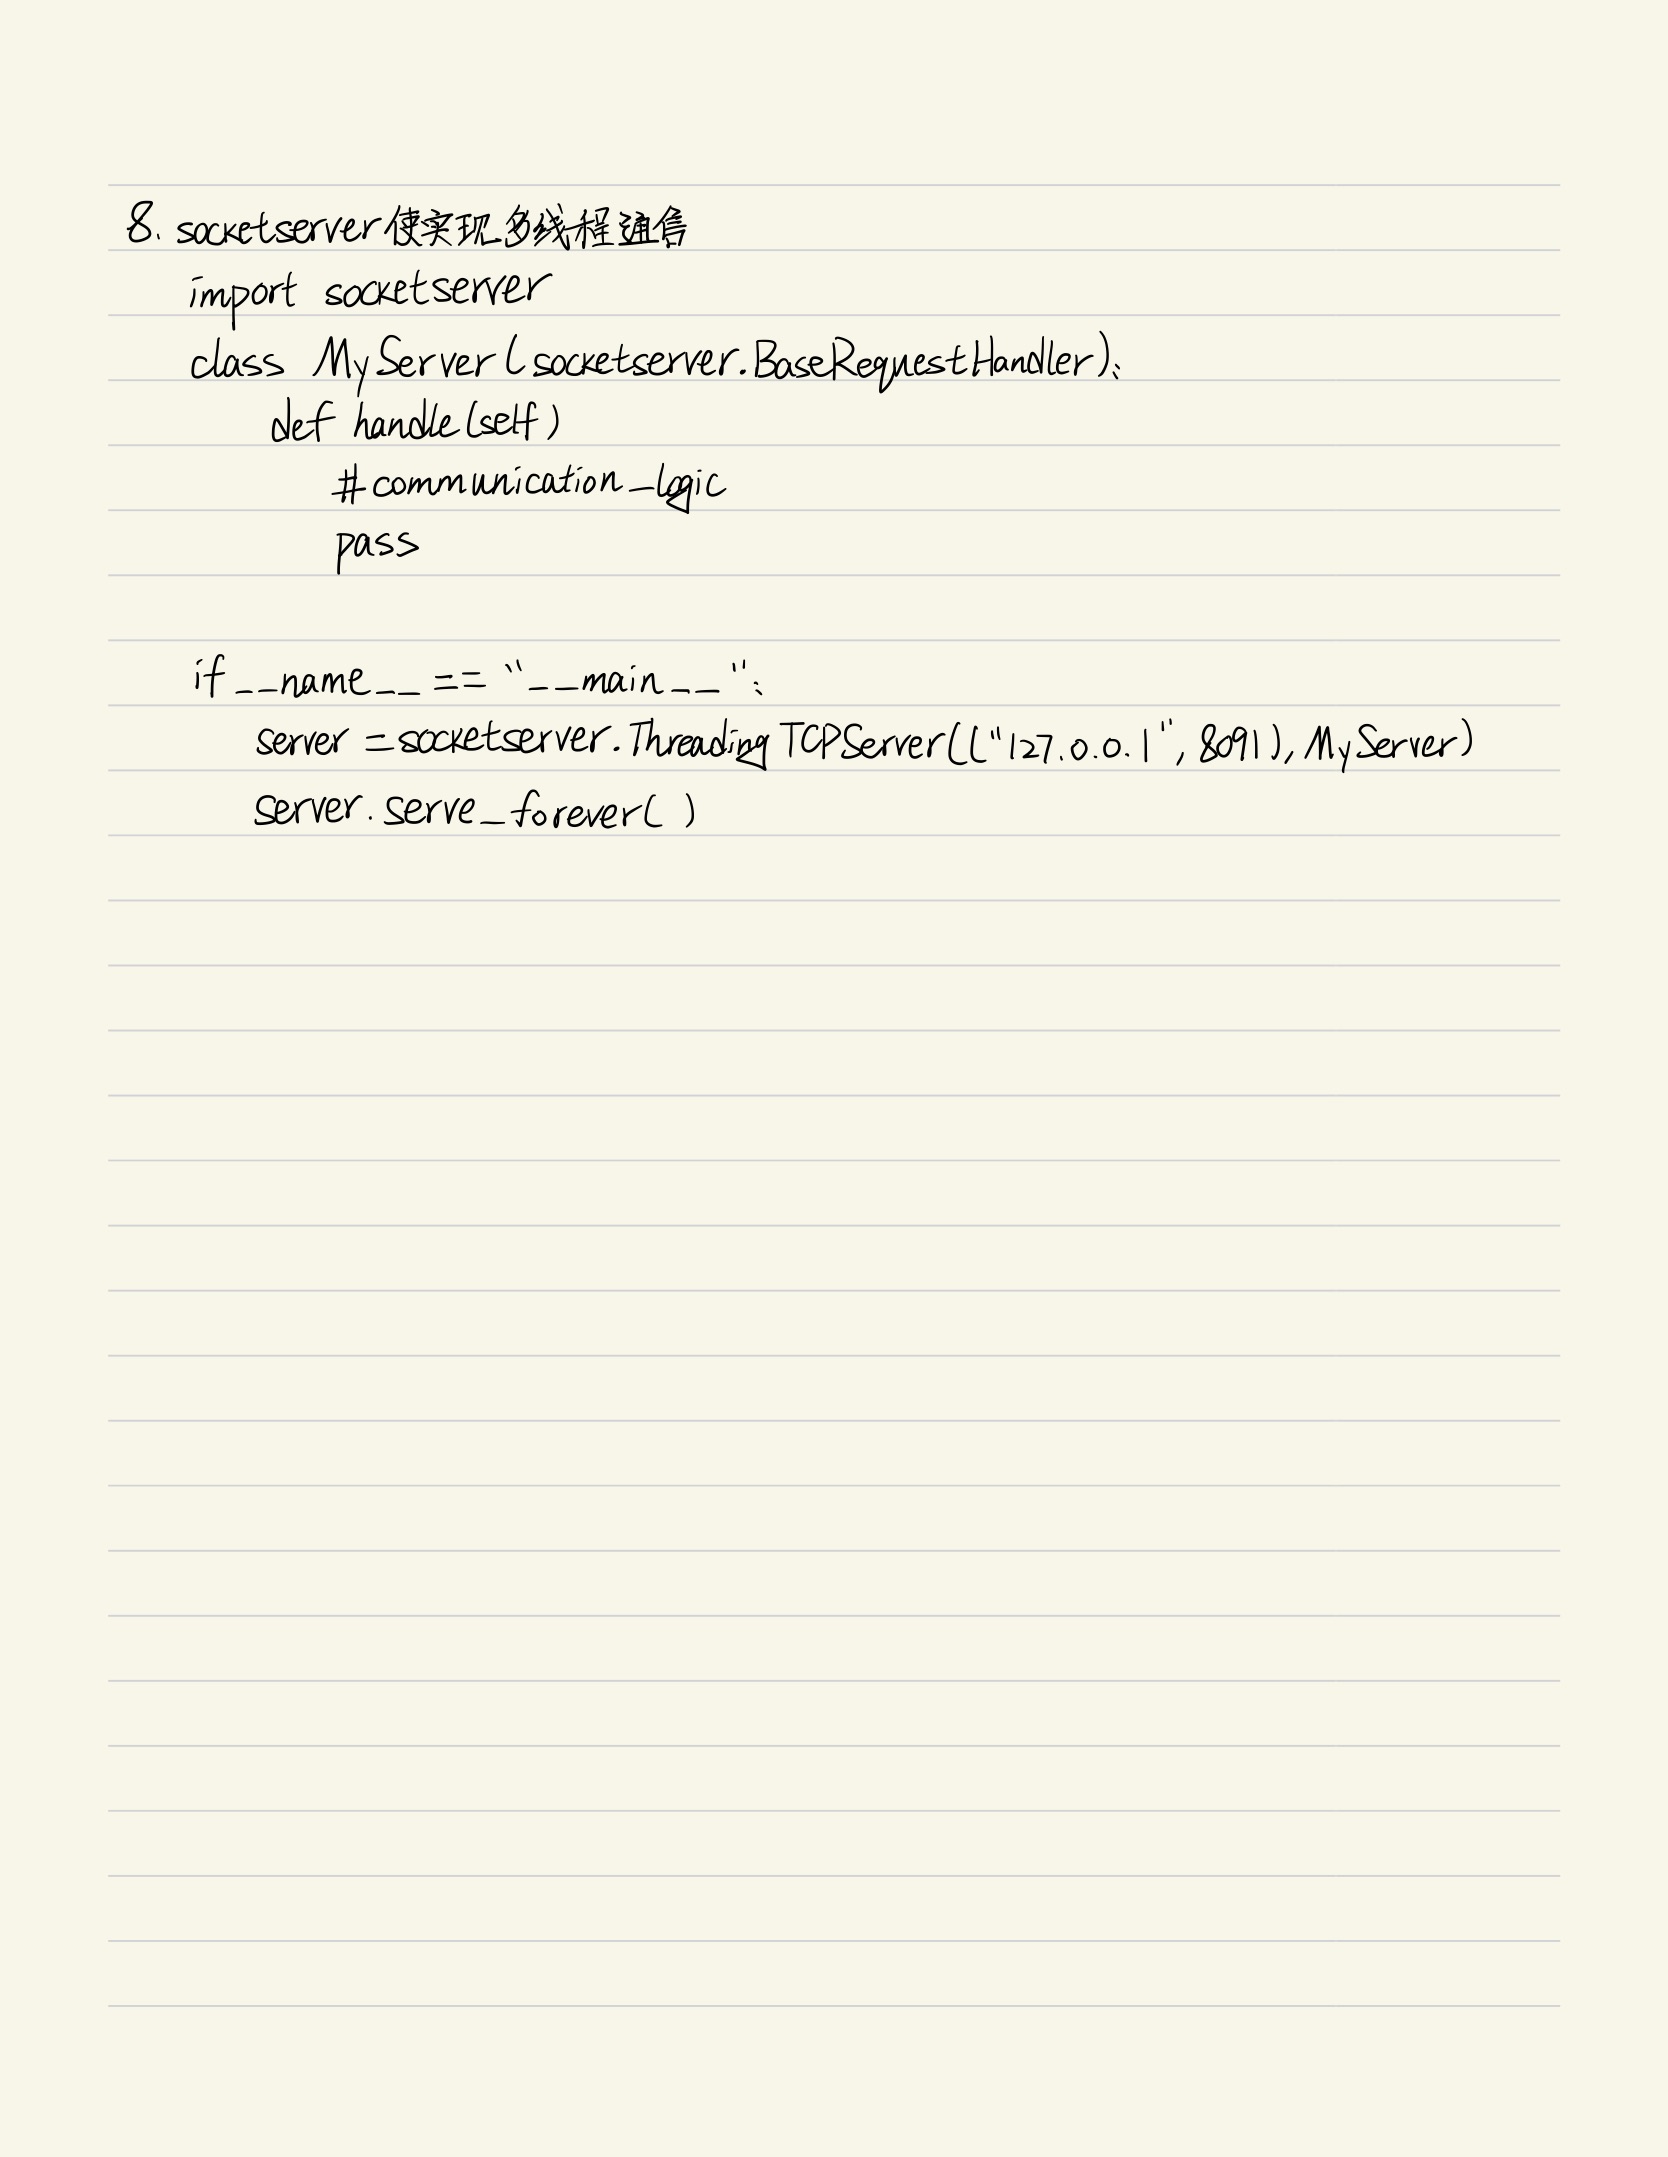 8. socketserver使实现多线程通信
import socketserver
class MyServer(socketserver.BaseRequestHandler):
def handle(self)
#communication_logic
pass
if __name__ == "__main__":
server = socketserver.ThreadingTCPServer(("127.0.0.1", 8091), MyServer)
server.serve_forever( )